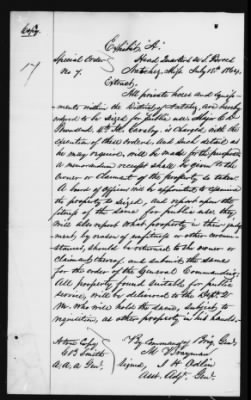 Copy.
Exhibit "A".
Special Orders Head Quarters U.S. Forces
No. 7. Natchez, Miss July 18th 1864.
Extract,
All private horses and equip-
ments within the District of Natchez, are hereby
ordered to be seized for public use; Major C. D.
is charged with the
execution of these orders, and such detail as
he may require, will be made for the purpose,
a memorandum receipt shall be given to the
owner or claimant of the property so taken.
A board of officers will be appointed to examine
the property so seized, and report upon the
fitness of the same for public use, they
will also report what property in their judg-
ment, by reason of or other circum-
stances, should be returned to the owner or
claimants thereof, and submit the same
for the order of the General Commanding.
All property found suitable for public
service, will be delivered to the Dept. Q.
Mr. who will hold the same, subject to
requisition, as other property in his hands.
A true Copy By Command of Brig. Genl.
C B Smith M Brayman
A. A. A. Genl. Signed, J H Odlin
Asst. Adjt. Genl.